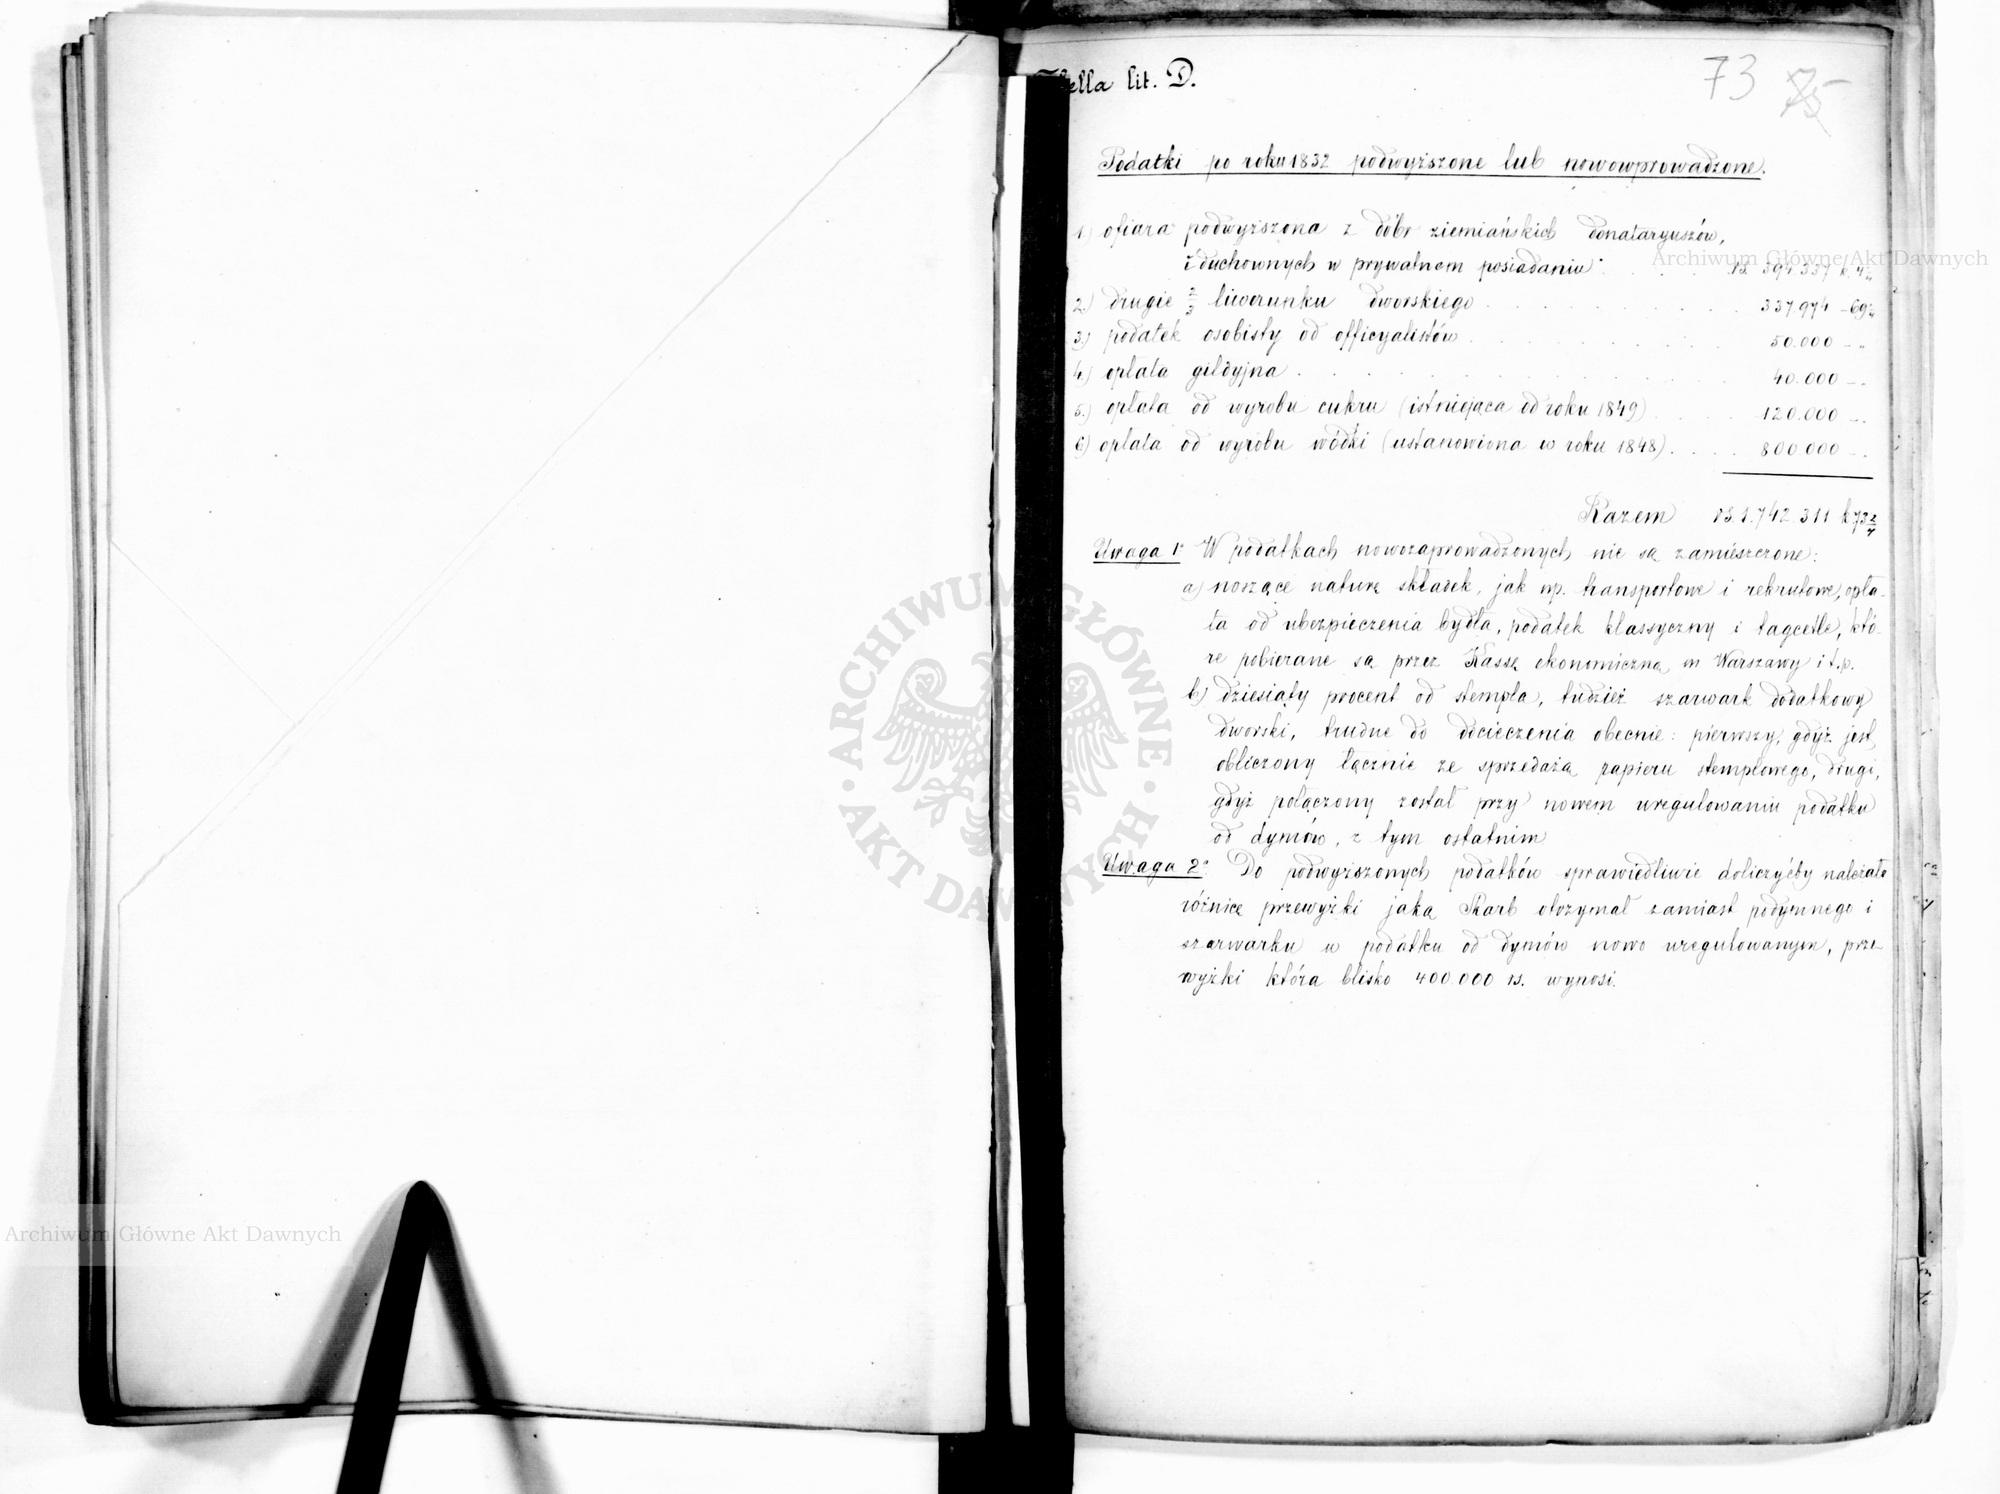 Tabella lit. D.
73 75
Podatki po roku 1832 podwyższone lub nowowprowadzone.
1) ofiara podwyższona z dóbr ziemiańskich donataryuszów,
i duchownych w prywatnem posiadaniu rs. 394.337 k. 4
2) drugie 2/3 liwerunku dworskiego 337.974 - 69
3) podatek osobisty od officyalistów 50.000 -
4) opłata gildyjna 40.000 -
5) opłata od wyrobu cukru (istniejąca od roku 1849) 120.000 -
6) opłata od wyrobu wódki (ustanowiona w roku 1848) 800.000 -
Razem rs. 1.742.311 k 73 2/4
Uwaga 1a W podatkach nowozaprowadzonych nie są zamieszczone:
a) noszące naturę składek, jak np. transportowe i rekrutowe, opła-
ta od ubezpieczenia bydła, podatek klassyczny i tagcetle, któ-
re pobierane są przez Kassę ekonomiczną m Warszawy i t.p.
b) dziesiąty procent od stempla, tudzież szarwark dodatkowy
dworski, trudne do dociéczenia obecnie: pierwszy, gdyż jest
obliczony łącznie ze sprzedażą papieru stemplowego, drugi,
gdyż połączony został przy nowem uregulowaniu podatku
od dymów, z tym ostatnim
Uwaga 2a Do podwyższonych podatków sprawiedliwie doliczyćby należało
różnicę przewyżki jaką Skarb otrzymał zamiast podymnego i
szarwarku w podatku od dymów nowo uregulowanym, prze-
wyżki która blisko 400.000 rs. wynosi.
Archiwum Główne Akt Dawnych
Archiwum Główne Akt Dawnych
ARCHIWUM GŁÓWNE
AKT DAWNYCH